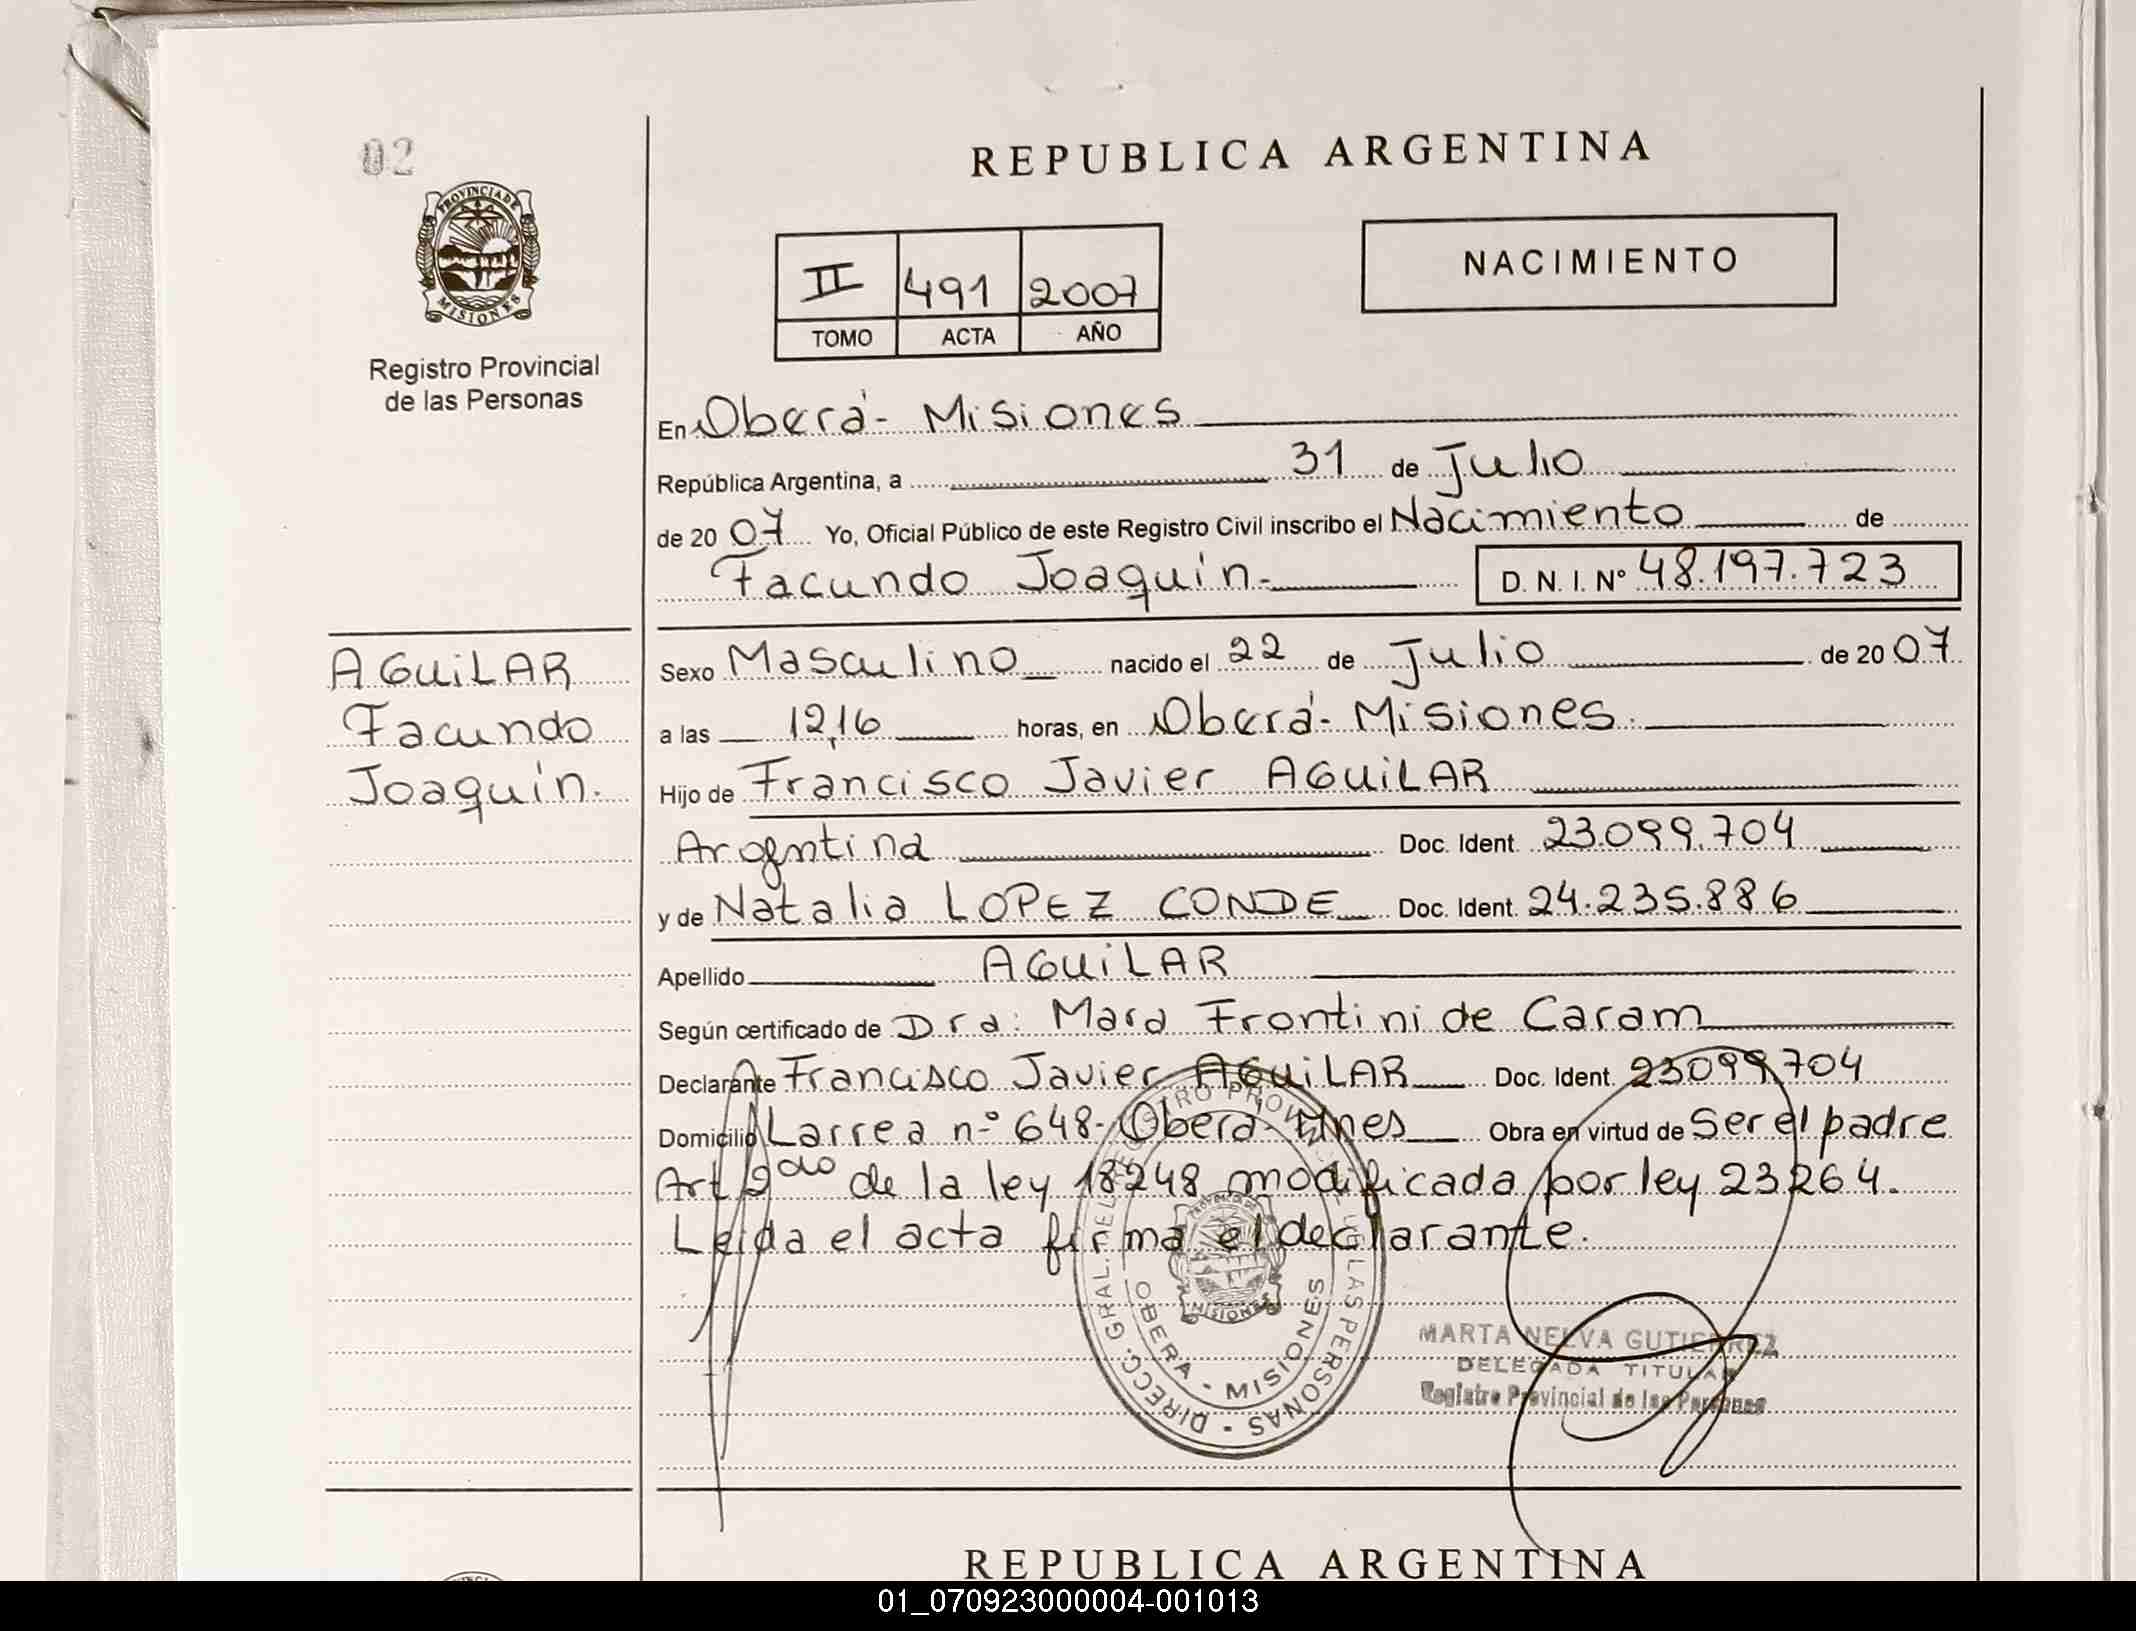 02
PROVINCIA DE
MISIONES
Registro Provincial
de las Personas
REPUBLICA ARGENTINA
II 491 2007
TOMO ACTA AÑO
NACIMIENTO
En Oberá - Misiones
República Argentina, a 31 de Julio
de 20 07 Yo, Oficial Público de este Registro Civil inscribo el Nacimiento de
Facundo Joaquín.- D. N. I. Nº 48.197.723
AGUiLAR
Facundo
Joaquín.
Sexo Masculino nacido el 22 de Julio de 20 07
a las 12,16 horas, en Oberá - Misiones.
Hijo de Francisco Javier AGUiLAR
Argentina Doc. Ident. 23.099.704
y de Natalia LOPEZ CONDE Doc. Ident. 24.235.886
Apellido AGUiLAR
Según certificado de Dra: Mara Frontini de Caram
Declarante Francisco Javier AGUiLAR Doc. Ident. 23099704
Domicilio Larrea nº 648- Oberá- Mnes Obra en virtud de Ser el padre
Art 2do de la ley 18248 modificada por ley 23264.
Leida el acta firma el declarante.
DIRECC. GRAL. DEL REGISTRO PROVINCIAL DE LAS PERSONAS -
OBERA - MISIONES
PROVINCIA DE
MISIONES
MARTA NELVA GUTIERREZ
DELEGADA TITULAR
Registro Provincial de las Personas
REPUBLICA ARGENTINA
01_070923000004-001013